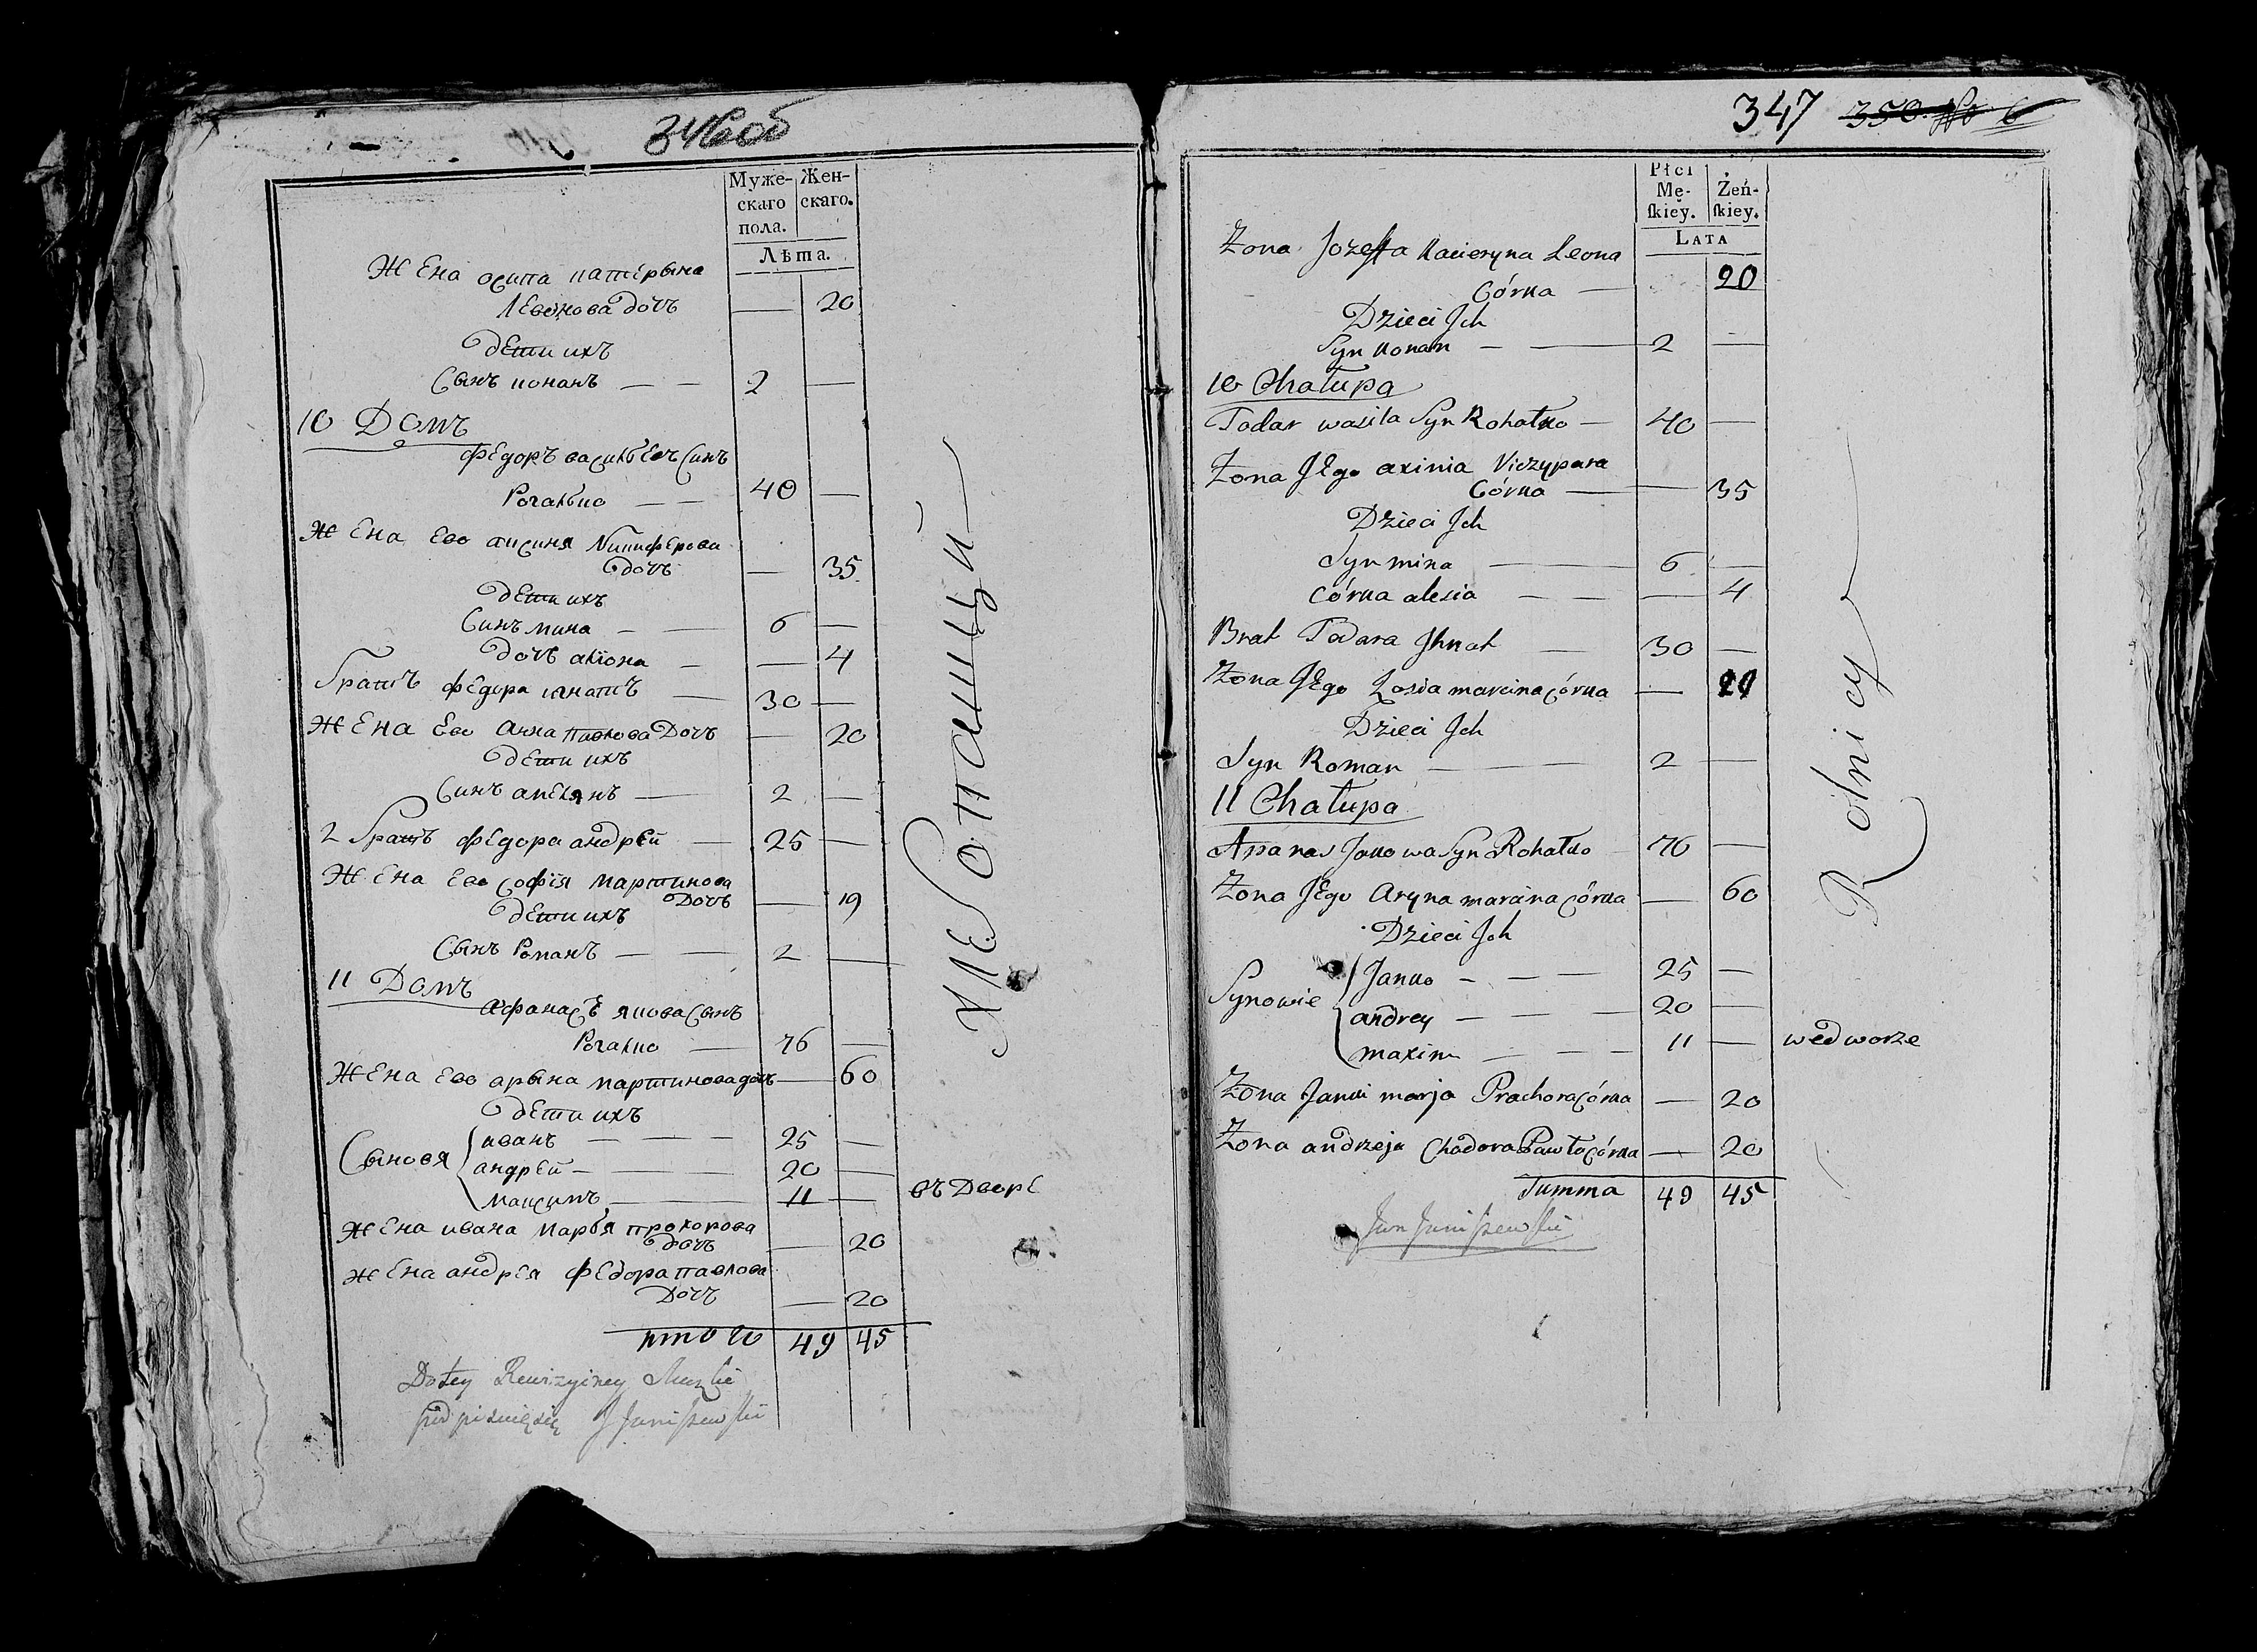 346об
Муже-
скаго
пола.
Жен-
скаго.
Лѣта.
Жена осипа катерына
Левонова дочъ — 20
дети ихъ
Сынъ конанъ — — 2 —
10 Домъ
Федоръ василъевъ Синъ
Рогалъко — — 40 —
Жена Ево аксиня Никиферова
дочъ — 35
дети ихъ
Синъ мина — — 6 —
дочъ алiона — — 4
братъ федора игнатъ — 30 —
Жена Ево Анна павлова Дочъ — 20
дети ихъ
Синъ амелянъ — 2 —
2 братъ федора андрей — 25 —
Жена Ево софiя мартинова
Дочъ — 19
дети ихъ
Сынъ Романъ — — 2 —
11 Домъ
афанасъ якова Сынъ
Рогалко — 76 —
Жена Ево арына мартинова дочъ — 60
дети ихъ
Сыновя
иванъ — — — 25 —
андрей — — 20 —
максимъ — — 11 — въ Дворе
жена ивана маръя прохорова
дочъ — 20
жена андрея федора павлова
Дочъ — 20
итого 49 45
Do tey Rewizyiney Skazki
podpisuię się J Juniszewski
Хлебопашцы
347 350 No 6
Płci
Mę-
ſkiey.
Żeń-
ſkiey.
LATA
Żona Jozeffa Kacieryna Leona
Córka — 20
Dzieci Jch
Syn Konan — — 2 —
10 Chałupa
Todar wasila Syn Rohalko — 40 —
Żona JEgo axinia Niczypara
Córka — — 35
Dzieci Jch
Syn mina — 6 —
Córka alesia — — — 4
Brat Todara Jhnat — 30 —
Żona JEgo Zosia marcina córka —
Dzieci Jch
Syn Roman — — — 2 —
11 Chałupa
Apanas Jakowa Syn Rohalko — 76 —
Żona JEgo Aryna marcina córka — 60
Dzieci Jch
Synowie
Janko — — — 25 —
andrey — — — 20 —
maxim — — — 11 — we dworze
Żona Janki marja Prachora córka — 20
Żona andrzeja Chadora Pawła córka — 20
Summa 49 45
Jan Juniszewski
Rolnicy